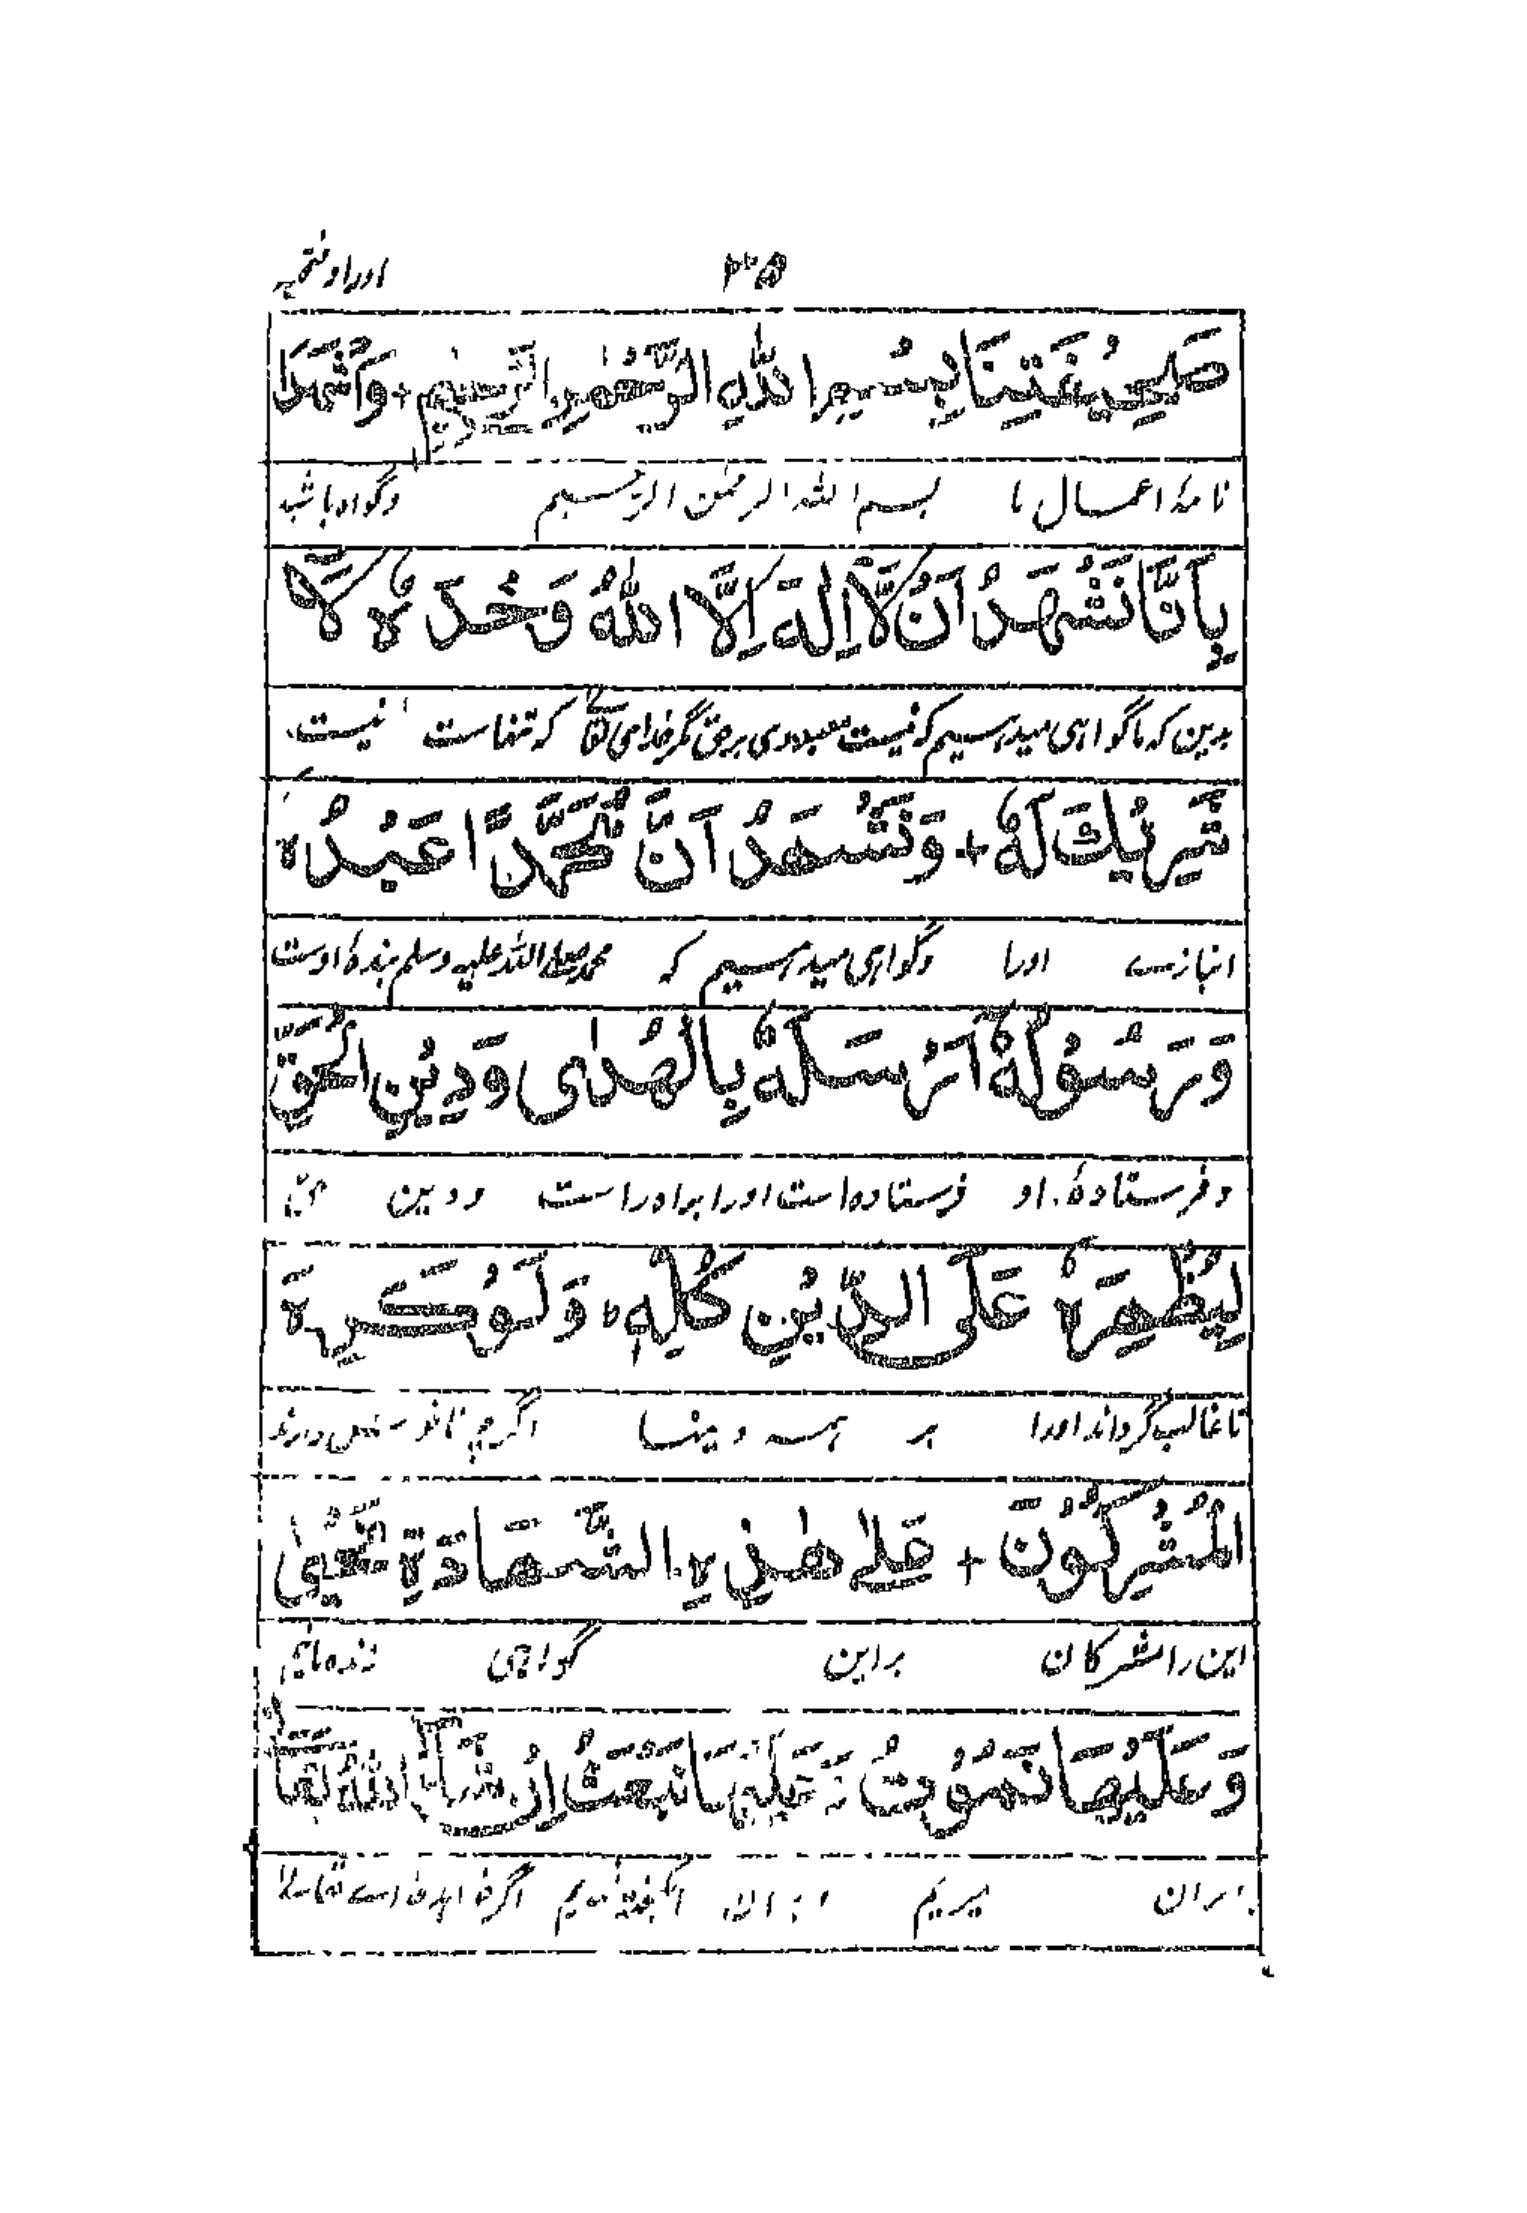 اوراد فتحیہ
صَحِيْفَتِنَا بِسْمِ اللّٰهِ الرَّحْمٰنِ الرَّحِيْمِ + وَاشْهَدَا
نامهٔ اعمال ما بسم الله الرحمٰن الرحیم وگواه باشید
بِاَنَّا نَشْهَدُ اَنْ لَّا اِلٰهَ اِلَّا اللّٰهُ وَحْدَهٗ لَا
بدین که ما گواهی میدهیم که نیست معبودی برحق مگر خدای تعالی که تنهاست نیست
شَرِيْكَ لَهٗ + وَنَشْهَدُ اَنَّ مُحَمَّدًا عَبْدُهٗ
انبازے اورا وگواهی میدهیم که محمد صلی الله علیه وسلم بندهٔ اوست
وَرَسُوْلُهٗ اَرْسَلَهٗ بِالْهُدٰى وَدِيْنِ الْحَقِّ
وفرستادهٔ او فرستاده است اورا براه راست ودین حق
لِيُظْهِرَهٗ عَلَى الدِّيْنِ كُلِّهٖ ٥ وَلَوْ كَرِهَ
تا غالب گرداند اورا بر همه دینها اگرچه ناخوش دارند
الْمُشْرِكُوْنَ + عَلٰى هٰذِهِ الشَّهَادَةِ نَحْيٰى
این را مشرکان براین گواهی زنده مانیم
وَعَلَيْهَا نَمُوْتُ وَعَلَيْهَا نُبْعَثُ اِنْ شَآءَ اللّٰهُ تَعَا
بران میریم وبران اگر خواهد خداے تعالی